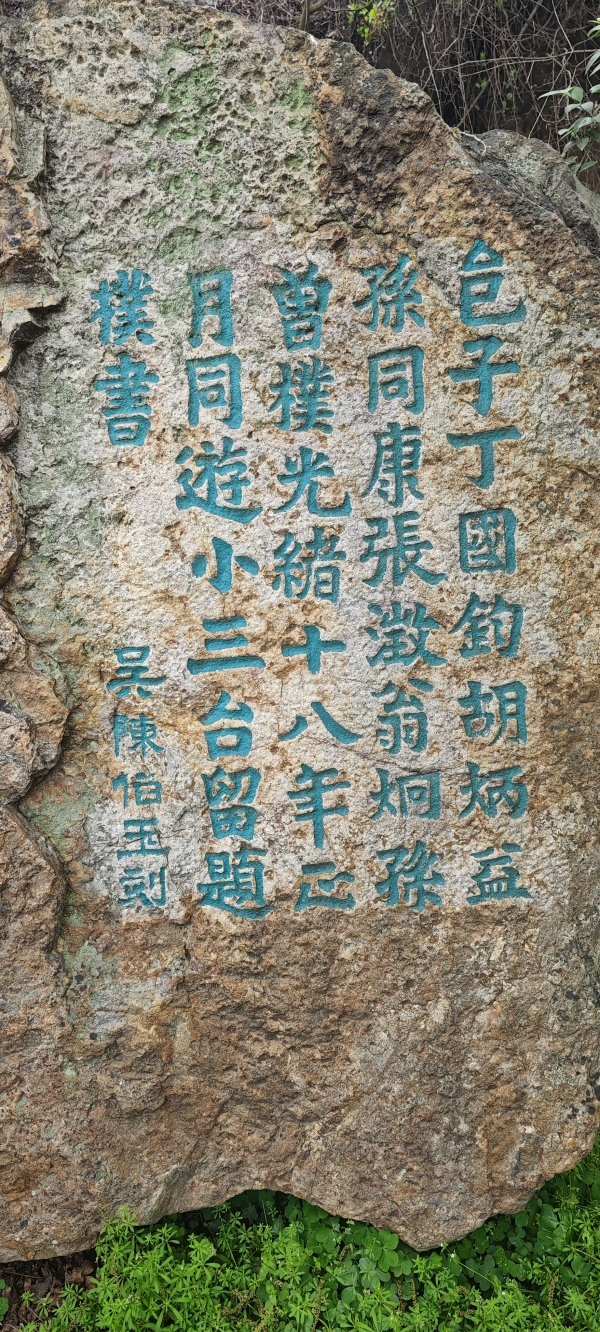 包子丁國鈞胡炳益
孫同康張瀓翁炯孫
曾樸光緒十八年正
月同遊小三台留題
樸書
吴陳伯玉刻